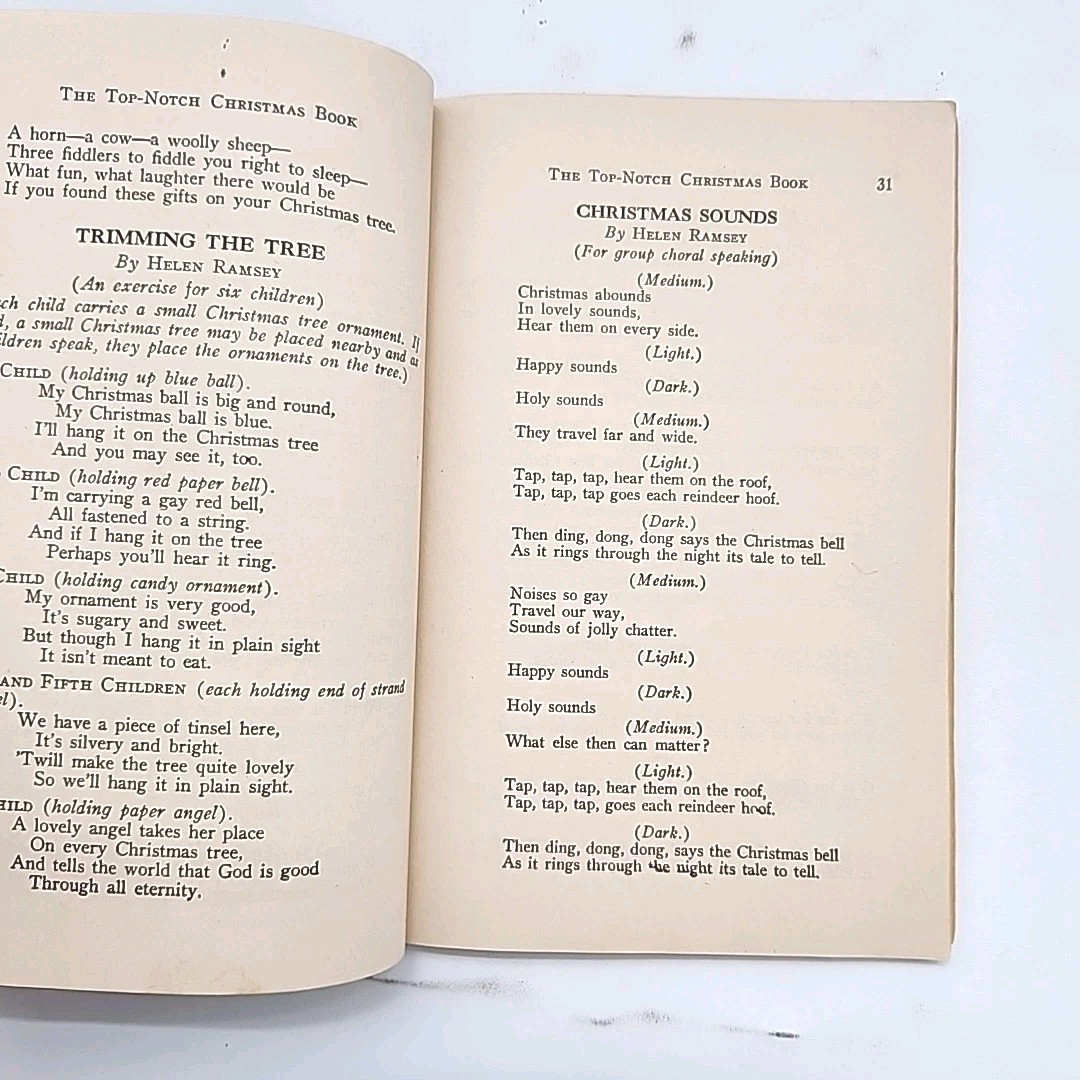 THE TOP-NOTCH CHRISTMAS BOOK
A horn—a cow—a woolly sheep—
Three fiddlers to fiddle you right to sleep—
What fun, what laughter there would be
If you found these gifts on your Christmas tree.
TRIMMING THE TREE
By HELEN RAMSEY
(An exercise for six children)
child carries a small Christmas tree ornament. If
a small Christmas tree may be placed nearby and as
speak, they place the ornaments on the tree.)
CHILD (holding up blue ball).
My Christmas ball is big and round,
My Christmas ball is blue.
I'll hang it on the Christmas tree
And you may see it, too.
CHILD (holding red paper bell).
I'm carrying a gay red bell,
All fastened to a string.
And if I hang it on the tree
Perhaps you'll hear it ring.
CHILD (holding candy ornament).
My ornament is very good,
It's sugary and sweet.
But though I hang it in plain sight
It isn't meant to eat.
AND FIFTH CHILDREN (each holding end of strand
We have a piece of tinsel here,
It's silvery and bright.
'Twill make the tree quite lovely
So we'll hang it in plain sight.
(holding paper angel).
A lovely angel takes her place
On every Christmas tree,
And tells the world that God is good
Through all eternity.
THE TOP-NOTCH CHRISTMAS BOOK 31
CHRISTMAS SOUNDS
By HELEN RAMSEY
(For group choral speaking)
(Medium.)
Christmas abounds
In lovely sounds,
Hear them on every side.
(Light.)
Happy sounds
(Dark.)
Holy sounds
(Medium.)
They travel far and wide.
(Light.)
Tap, tap, tap, hear them on the roof,
Tap, tap, tap goes each reindeer hoof.
(Dark.)
Then ding, dong, dong says the Christmas bell
As it rings through the night its tale to tell.
(Medium.)
Noises so gay
Travel our way,
Sounds of jolly chatter.
(Light.)
Happy sounds
(Dark.)
Holy sounds
(Medium.)
What else then can matter?
(Light.)
Tap, tap, tap, hear them on the roof,
Tap, tap, tap, goes each reindeer hoof.
(Dark.)
Then ding, dong, dong, says the Christmas bell
As it rings through the night its tale to tell.